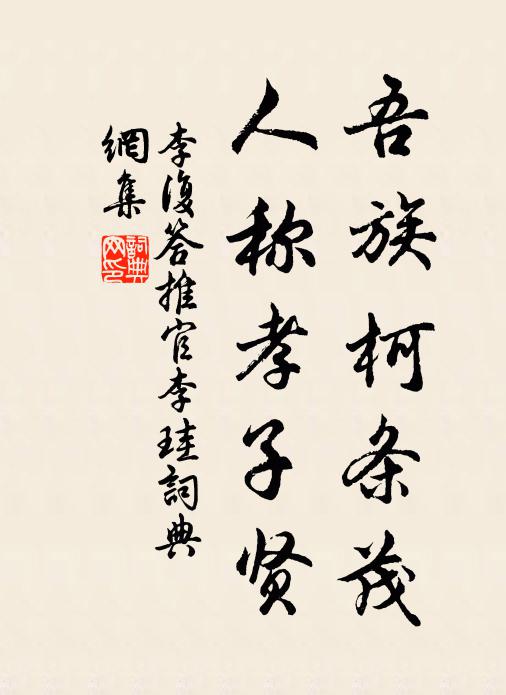 吾族柯条茂
人称孝子贤
李復答推官李珪詞典
網集
詞典網印